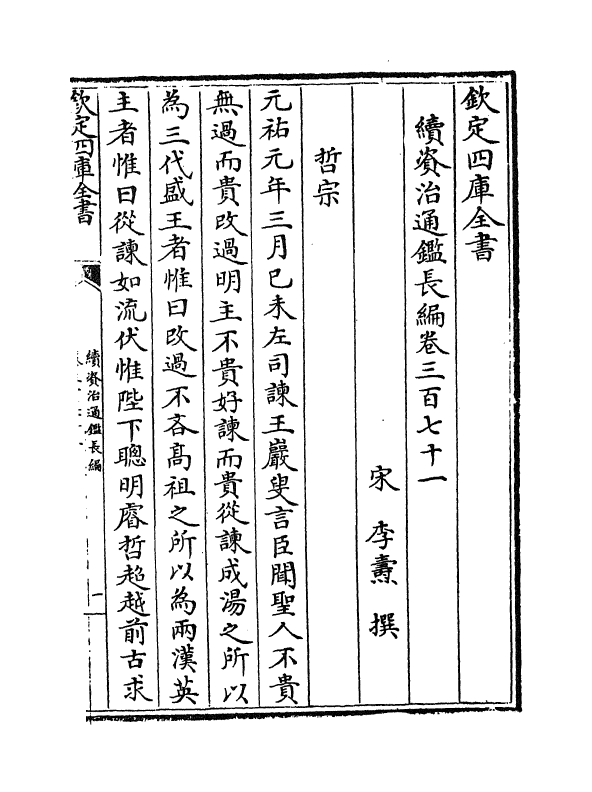 欽定四庫全書
續資治通鑑長編卷三百七十一
宋 李燾 撰
哲宗
元祐元年三月己未左司諫王巖叟言臣聞聖人不貴
無過而貴改過明主不貴好諫而貴從諫成湯之所以
為三代盛王者惟曰改過不吝髙祖之所以為兩漢英
主者惟曰從諫如流伏惟陛下聰明睿哲超越前古求
欽定四庫全書
續資治通鑑長編
一